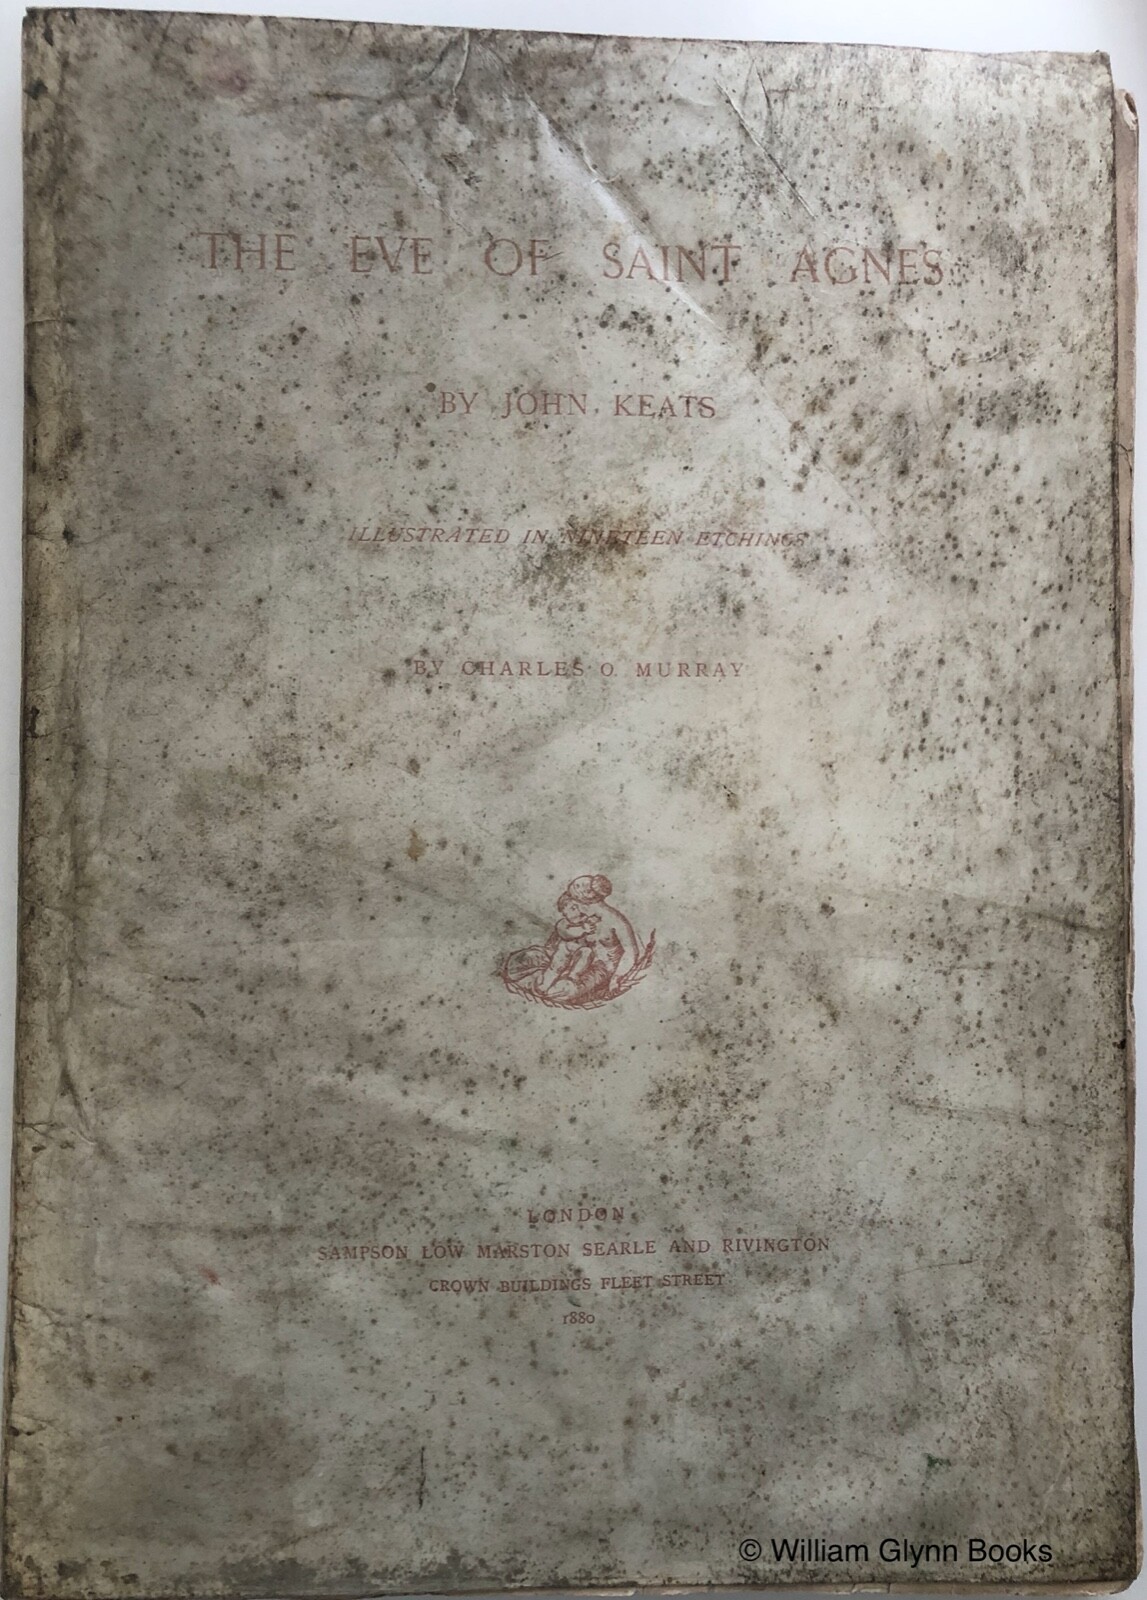 THE EVE OF SAINT AGNES
BY JOHN KEATS
ILLUSTRATED IN NINETEEN ETCHINGS
BY CHARLES O. MURRAY
LONDON
SAMPSON LOW MARSTON SEARLE AND RIVINGTON
CROWN BUILDINGS FLEET STREET
1880
© William Glynn Books